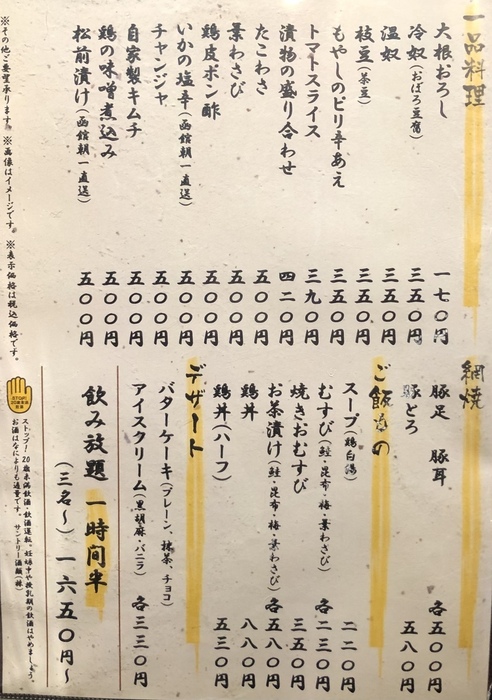 一品料理
大根おろし 一七〇円
冷奴(おぼろ豆腐) 三五〇円
温奴 三五〇円
枝豆(茶豆) 三五〇円
もやしのピリ辛あえ 三五〇円
トマトスライス 三九〇円
漬物の盛り合わせ 四二〇円
たこわさ 五〇〇円
葉わさび 五〇〇円
鶏皮ポン酢 五〇〇円
いかの塩辛(函館朝一直送) 五〇〇円
チャンジャ 五〇〇円
自家製キムチ 五〇〇円
鶏の味噌煮込み 五〇〇円
松前漬け(函館朝一直送) 五〇〇円
※その他ご要望承ります。 ※画像はイメージです。 ※表示価格は税込価格です。
網焼
豚足 豚耳 各五〇〇円
豚とろ 五八〇円
ご飯もの
スープ(鶏白湯) 二二〇円
むすび(鮭・昆布・梅・葉わさび) 各二三〇円
焼きおむすび 三五〇円
お茶漬け(鮭・昆布・梅・葉わさび) 各五八〇円
鶏丼 八八〇円
鶏丼(ハーフ) 五三〇円
デザート
バターケーキ(プレーン、抹茶、チョコ)
アイスクリーム(黒胡麻・バニラ) 各三三〇円
飲み放題 一時間半
(三名〜) 一六五〇円〜
STOP!
ストップ!20歳未満飲酒・飲酒運転。妊娠中や授乳期の飲酒はやめましょう。
お酒はなによりも適量です。 サントリー酒類(株)